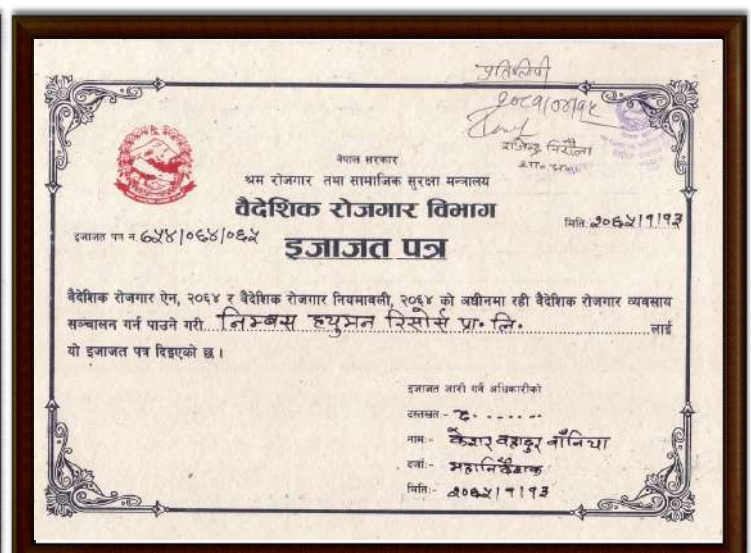 प्रतिलिपी
नेपाल सरकार
श्रम रोजगार तथा सामाजिक सुरक्षा मन्त्रालय
वैदेशिक रोजगार विभाग
मिति: २०६५।१।१३
इजाजत पत्र नं ६५४।०६४।०६५
इजाजत पत्र
वैदेशिक रोजगार ऐन, २०६४ र वैदेशिक रोजगार नियमावली, २०६४ को अधीनमा रही वैदेशिक रोजगार व्यवसाय
सञ्चालन गर्न पाउने गरी. निम्बस ह्युमन रिसोर्स प्रा॰ लि॰ ........ लाई
यो इजाजत पत्र दिइएको छ ।
इजाजत जारी गर्ने अधिकारीको
दस्तखत - द. ......
नाम:- केशर बहादुर बाँनिया
दर्जा:- महानिर्देशक
मिति:- २०६५।१।१३